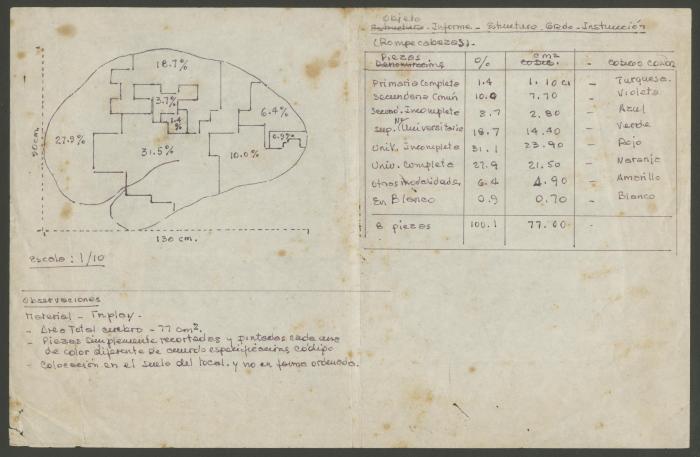 18.7%
3.7%
1.4
%
6.4%
0.9%
27.9%
31.5%
10.0%
90 cm.
130 cm.
Escala: 1/10
Observaciones
Material - Triplay.
- Area Total cerebro - 77 cm².
- Piezas simplemente recortadas y pintadas cada una
de color diferente de acuerdo especificacions código
- Colocación en el suelo del local. y no en forma ordenada.
Objeto
Estructura Informe - Estructura Grdo. Instrucción
(Rompecabezas).
Piezas
Denominacions % cm² - Código Color
Primaria Completa 1.4 1.10 - Turquesa.
Secundaria Común 10.0 7.70 - Violeta
Secund. Incompleta 3.7 2.80 - Azul
No
Sup. Universitario 18.7 14.40 - Verde
Univ. Incompleta 31.1 23.90 - Rojo
Univ. Completa 27.9 21.50 - Naranja
Otras modalidades, 6.4 4.90 - Amarillo
En Blanco 0.9 0.70 - Blanco
8 piezas 100.1 77.00 -